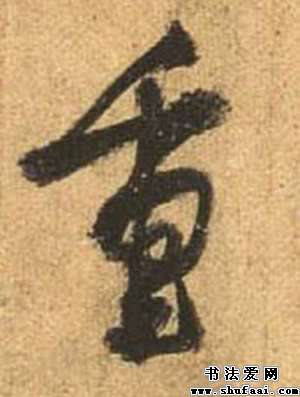 重
书法爱网
www.shufaai.com